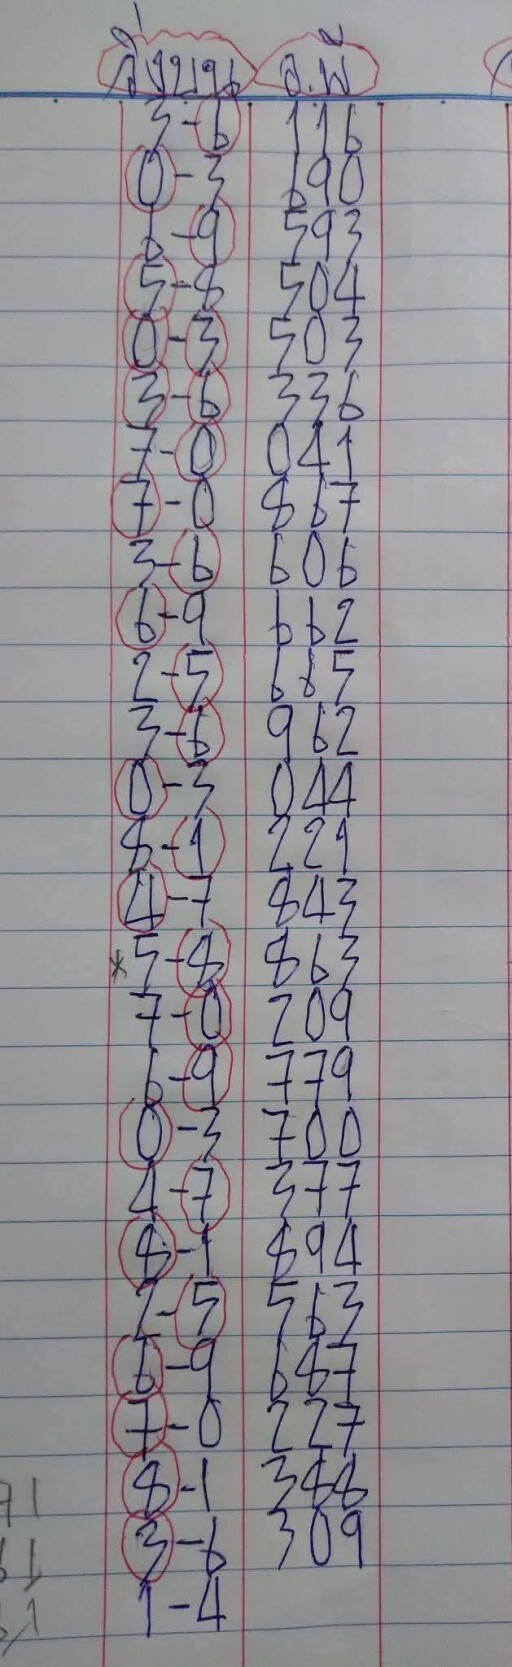 3-6 116
0-3 690
6-9 593
5-8 504
0-3 503
3-6 336
7-0 041
7-0 867
3-6 606
6-9 662
2-5 665
3-6 962
0-3 044
8-1 221
4-7 843
*5-8 863
7-0 209
6-9 779
0-3 700
4-7 377
8-1 894
2-5 563
6-9 687
7-0 227
8-1 388
3-6 309
1-4